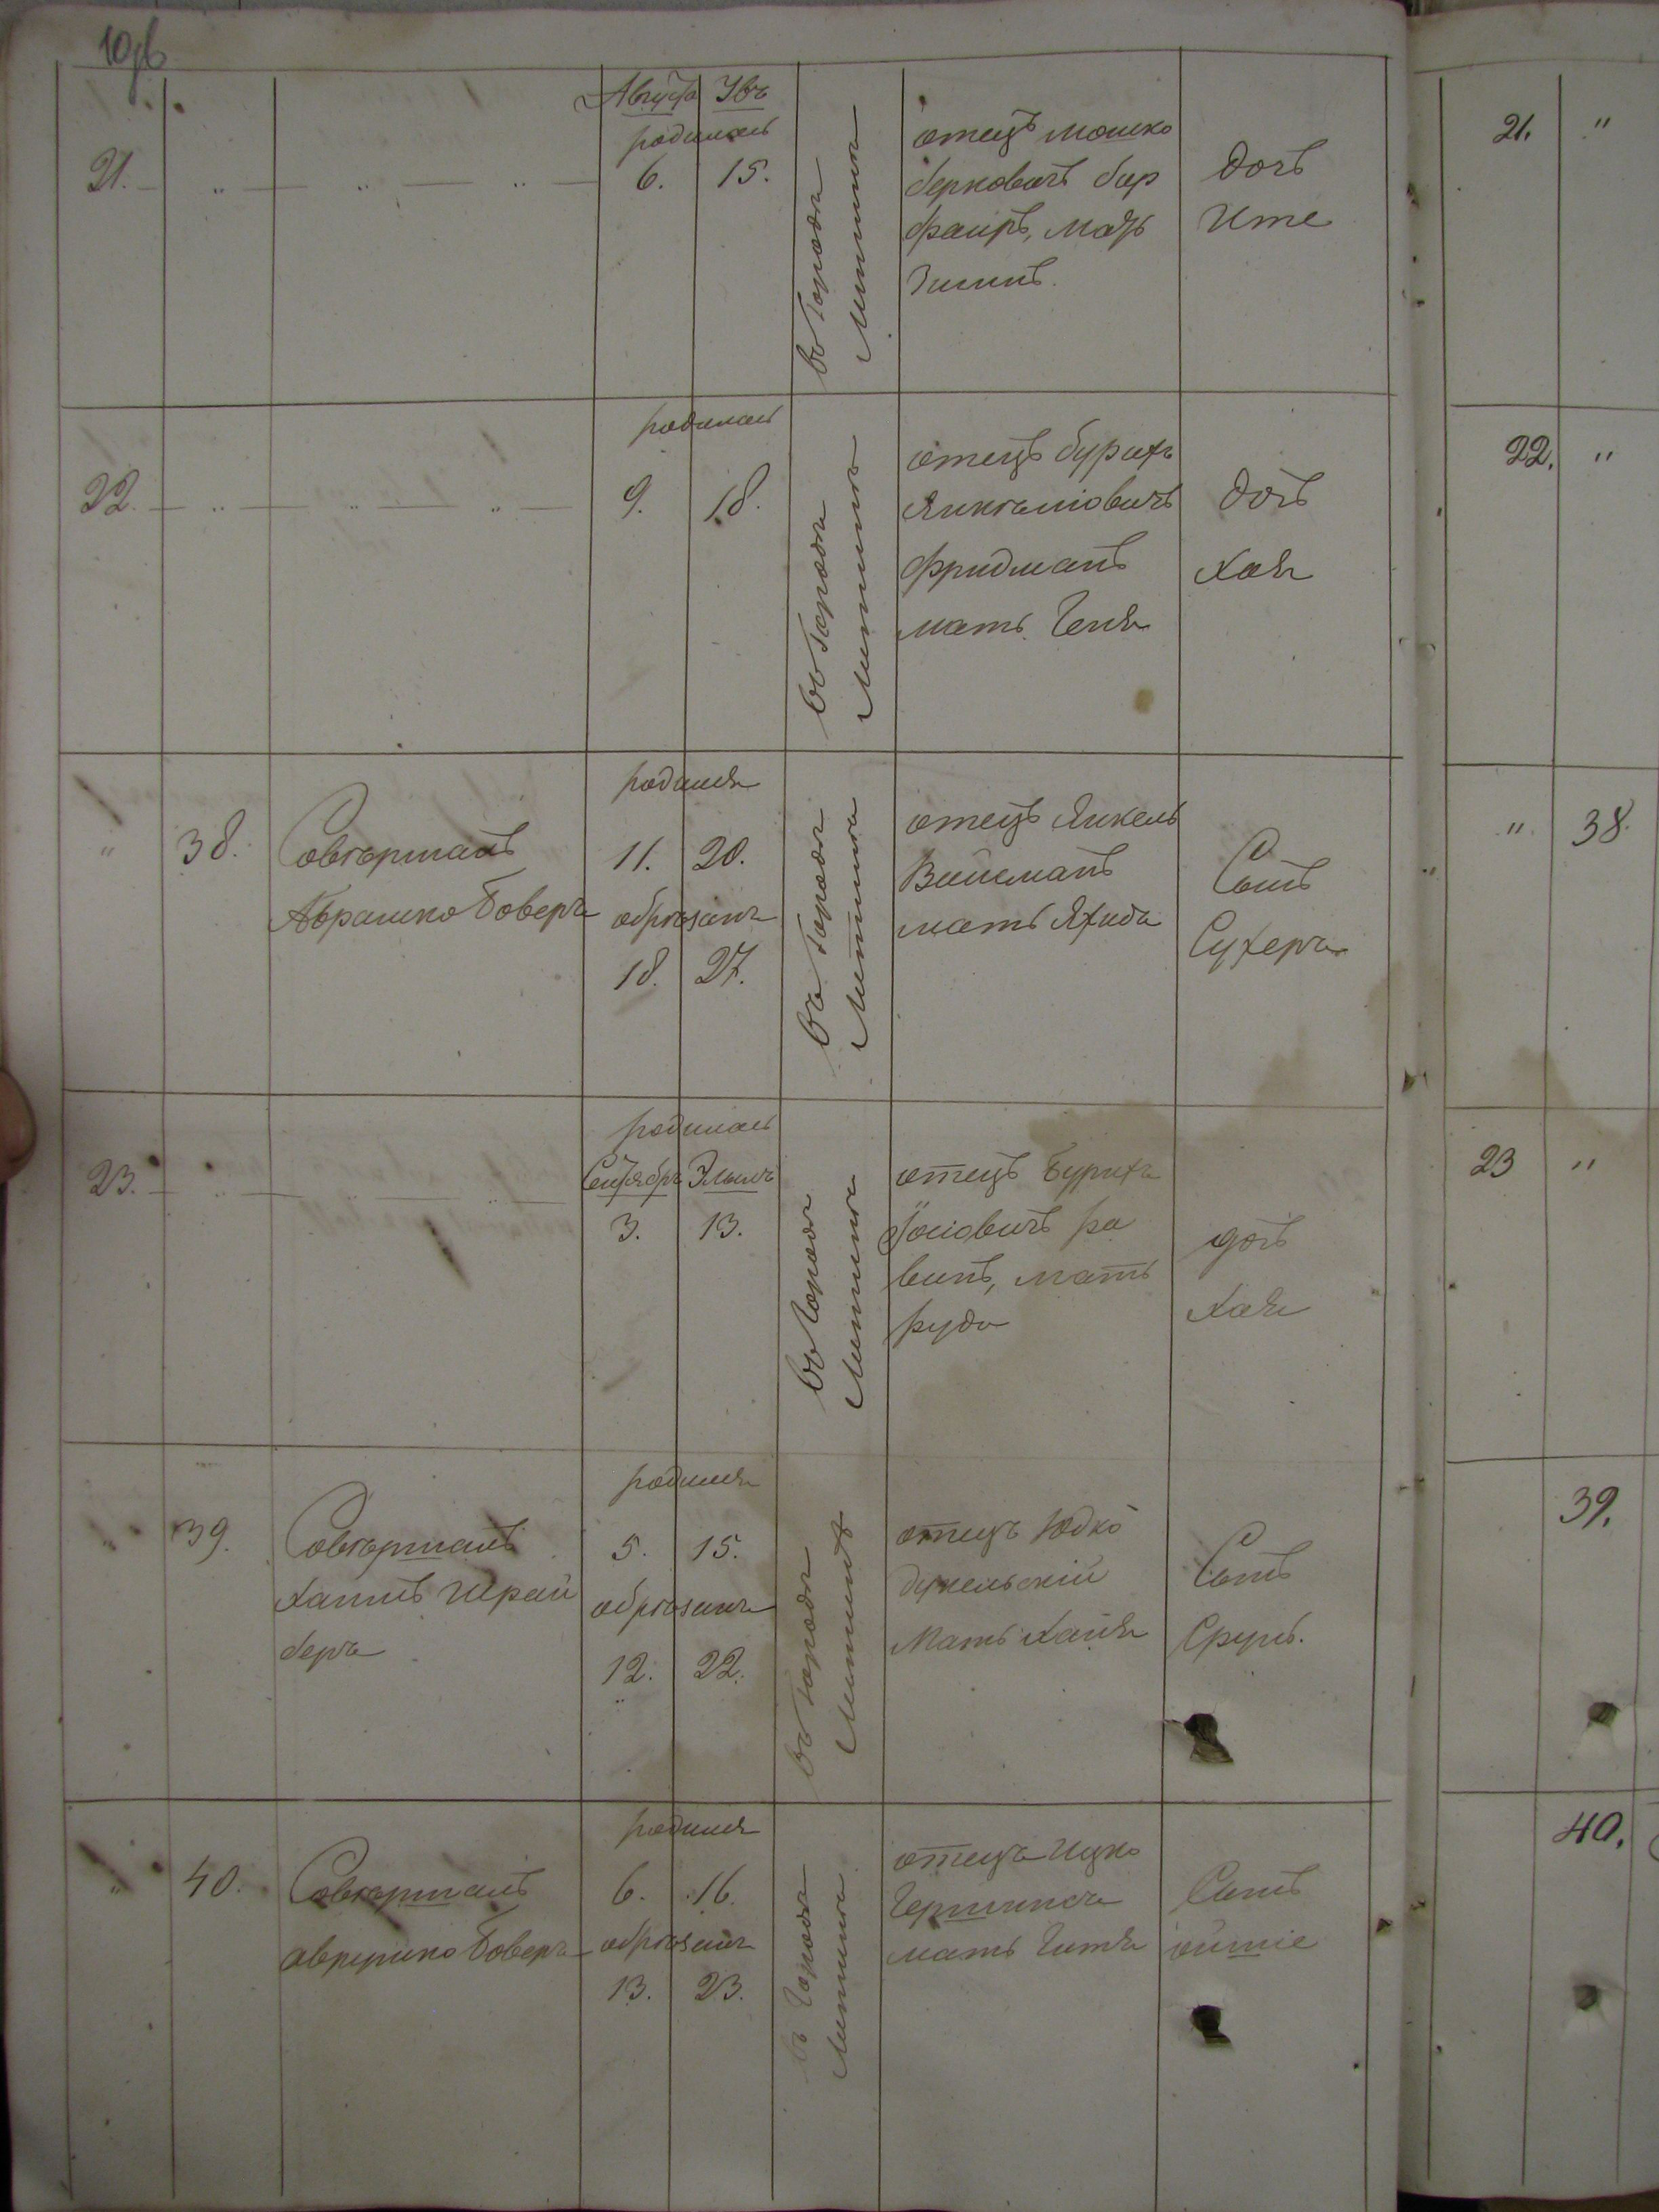 Августа Увъ
21. " " " родилась 6. 15. въ городѣ Литинѣ отецъ Мошко
берковичъ бир
фаиръ, мать
Зисинъ.
дочь
Ите
22. " " " родилась 9. 18. въ городѣ Литинѣ отецъ бурихъ
Янкелiовичъ
фридманъ
мать Геня
дочь
хая
" 38. Совгерманъ
Абрашко Боверъ
родился
11. 20.
обрѣзанъ
18. 27.
въ городѣ Литинѣ
отецъ Янкель
Вайсманъ
мать Яхида
Сынъ
Сухеръ
23. " родилась
Сентября Элылъ
3. 13.
въ городѣ Литинѣ
отецъ Бурихъ
Iосiовичъ ра
винъ, мать
руда
дочь
хая
" 39. Совгерманъ
хаимъ Шрай
беръ
родился
5. 15.
обрѣзанъ
12. 22.
въ городѣ Литинѣ
отецъ Юдко
дукельскiй
Мать хаiя
Сынъ
Сруль.
" 40. Совгерманъ
аврушко Боверъ
родился
6. 16.
обрѣзанъ
13. 23.
въ городѣ Литинѣ
отецъ Ицко
мать Гитя
Сынъ
21. "
22. "
" 38.
23 "
39.
40.